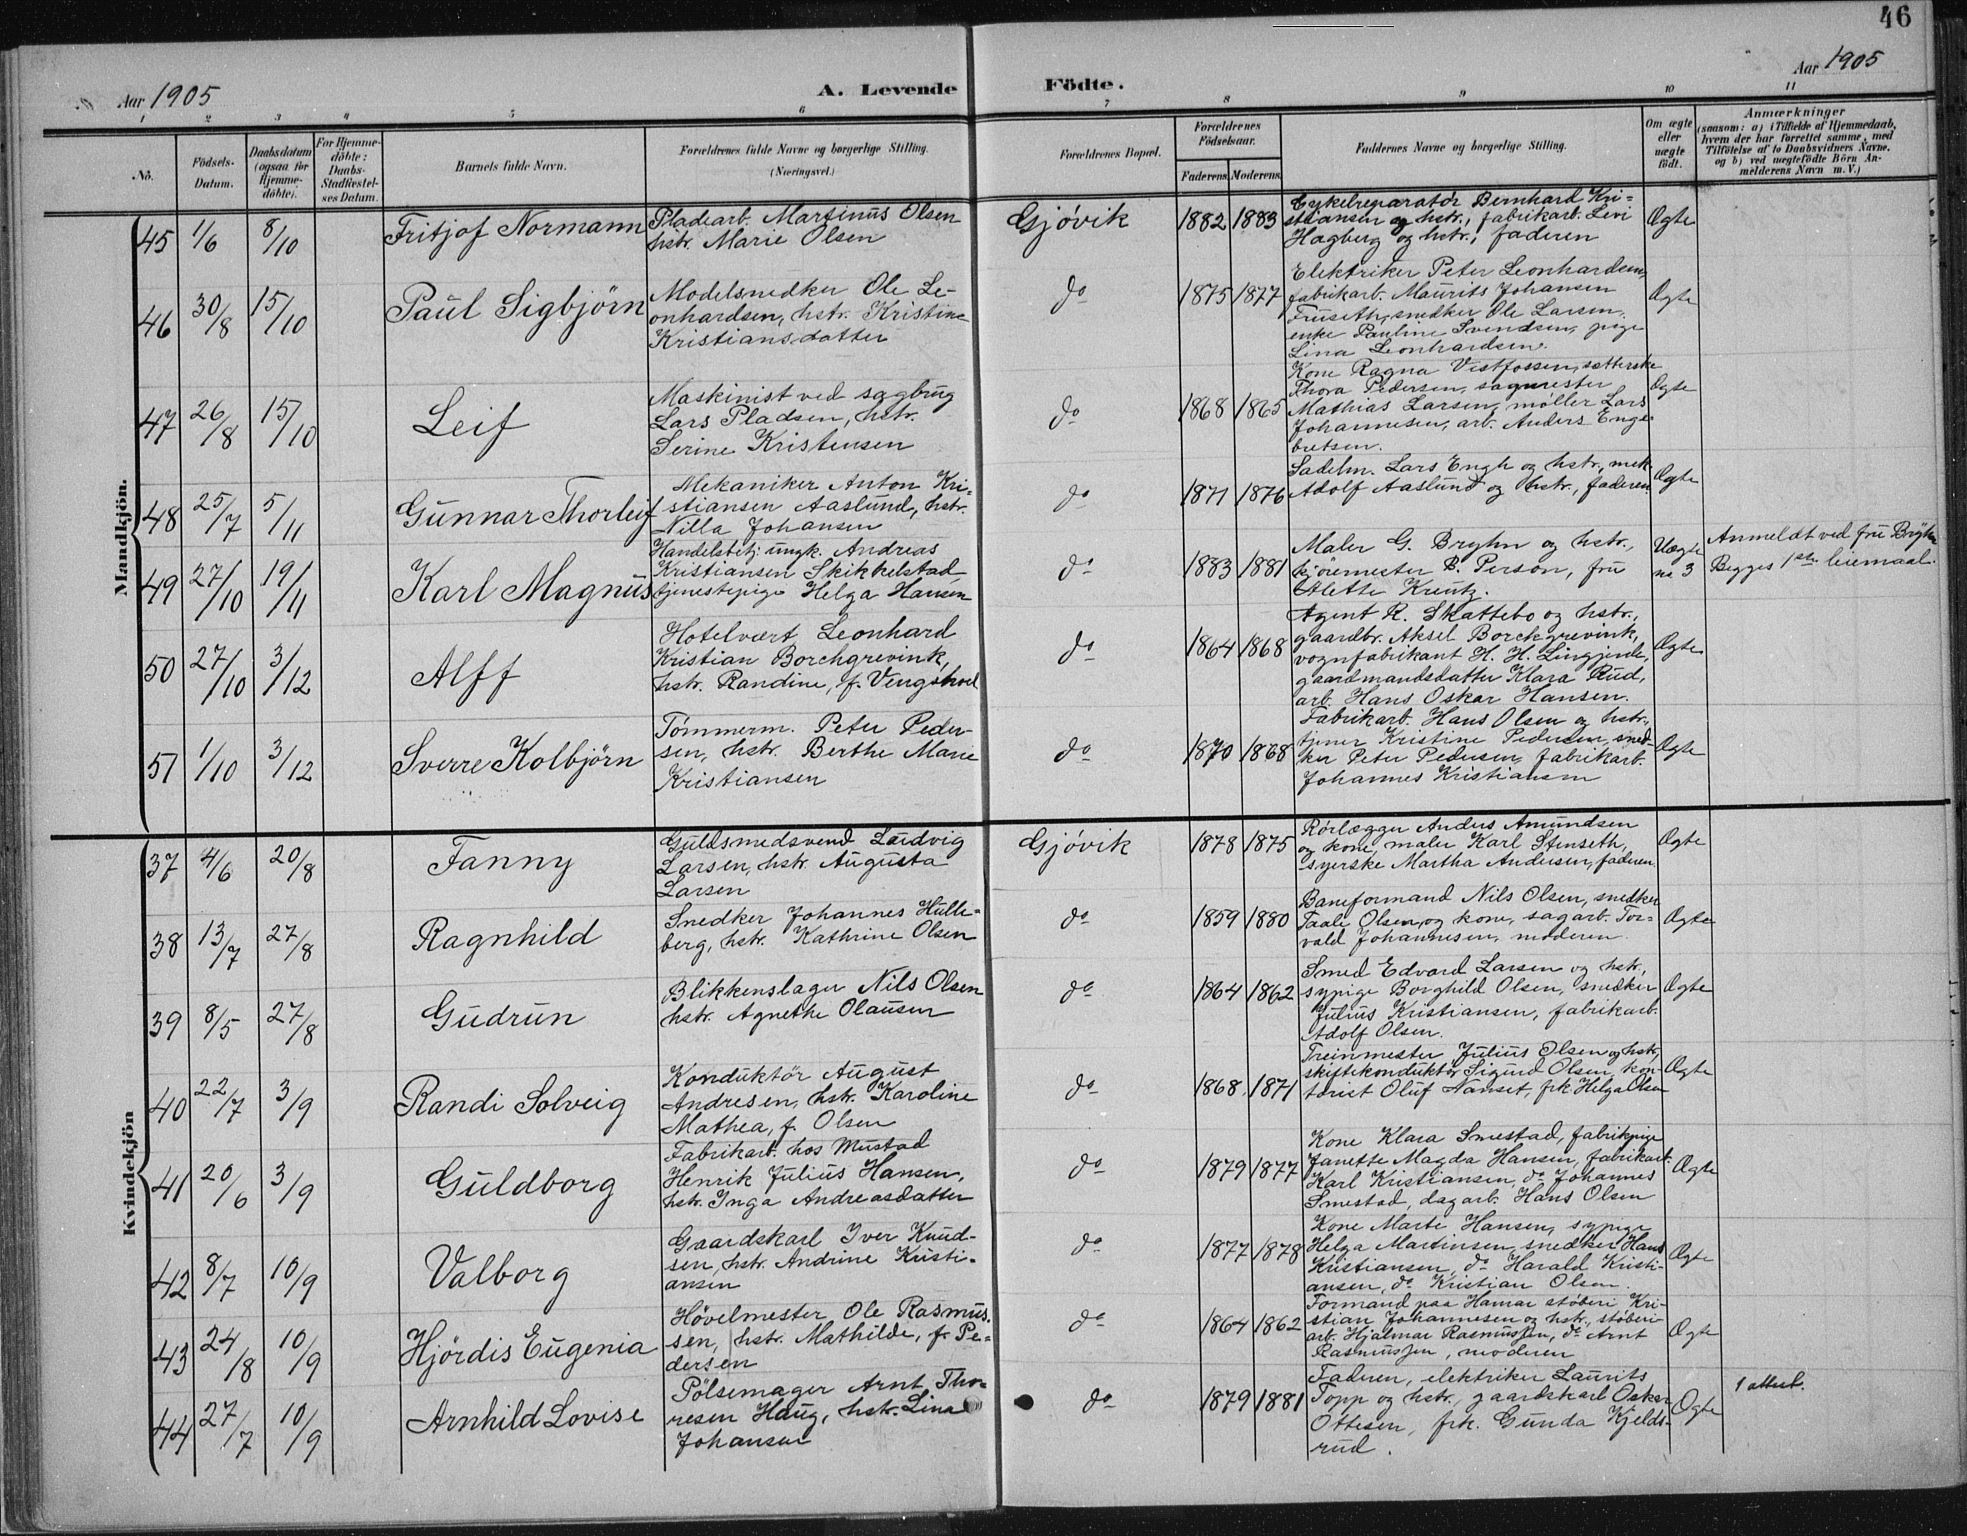 46
Aar 1905
A. Levende Födte.
Aar 1905
1 2 3 4 5 6 7 8 9 10 11
No.
Födsels-Datum.
Daabsdatum (ogsaa for Hjemmedöbte).
For Hjemmedöbte: Daabs-Stadfæstelses Datum.
Barnets fulde Navn.
Forældrenes fulde Navne og borgerlige Stilling. (Næringsvei.)
Forældrenes Bopæl.
Forældrenes Födselsaar.
Faderens. Moderens.
Faddernes Navne og borgerlige Stilling.
Om ægte eller uægte födt.
Anmærkninger
(saasom: a) i Tilfælde af Hjemmedaab, hvem der har forrettet samme, med Tilföielse af to Daabsvidners Navne, og b) ved uægtefödte Börn Anmelderens Navn m. V.)
Mandkjön.
45 1/6 8/10 Fritjof Normann
Pladearb. Martinus Olsen
hstr. Marie Olsen
Gjövik 1882 1883
Cykelreparatör Bernhard Kri=
stiansen og hstr., fabrikarb. Levi
Hagberg og hstr., faderen
Ægte
46 30/8 15/10 Paul Sigbjörn
Modelsnedker Ole Le-
onhardsen, hstr. Kristine
Kristiansdatter
do 1875 1877
Elektriker Peter Leonhardsen,
fabrikarb. Maurits Johansen
Fruseth, snedker Ole Larsen,
enke Pauline Svendsen, pige
Lina Leonhardsen.
Ægte
47 26/8 15/10 Leif
Maskinist ved sagbrug
Lars Pladsen, hstr.
Serine Kristensen
do 1868 1865
Kone Ragna Vestfossen, sætterske
Thora Pedersen, sagmester
Mathias Larsen, møller Lars
Johannesen, arb. Anders Enge
bretsen.
Ægte
48 25/7 5/11 Gunnar Thorleif
Mekaniker Anton Kri=
stiansen Aaslund, hstr.
Nilla Johansen
do 1871 1876
Sadelm. Lars Engh og hstr., mek.
Adolf Aaslund og hstr., faderen
Ægte
49 27/10 19/11 Karl Magnus
Handelsbetj. ungk. Andreas
Kristiansen Skikkelstad
tjenestepige Helga Hansen
do 1883 1881
Maler G. Bryhn og hstr.,
kjöremester B. Person, fru
Alette Kreutz.
Uægte
no 3
Anmeldt ved fru Bryhn
Begges 1ste leiemaal.
50 27/10 3/12 Alff
Hotelvært Leonhard
Kristian Borchgrevink,
hstr. Randine, f. Vengshoel
do 1864 1868
Agent R. Skattebo og hstr.,
gaardbr. Aksel Borchgrevink,
vognfabrikant H. H. Lingjerde,
gaardmandsdatter Klara Rud,
arb. Hans Oskar Hansen.
Ægte
51 1/10 3/12 Sverre Kolbjörn
Tömmerm. Peter Peder-
sen, hstr. Berthe Marie
Kristiansen
do 1870 1868
Fabrikarb. Hans Olsen og hstr.,
tjener Kristine Pedersen, sned-
ker Peter Pedersen, fabrikarb.
Johannes Kristiansen
Ægte
Kvindekjön
37 4/6 20/8 Fanny
Guldsmedsvend Ludvig
Larsen, hstr. Augusta
Larsen
Gjövik 1878 1875
Rörlægger Anders Amundsen
og kone, maler Karl Stenseth,
syerske Martha Andersen, faderen.
Ægte
38 13/7 27/8 Ragnhild
Snedker Johannes Hulle=
berg, hstr. Kathrine Olsen
do 1859 1880
Baneformand Nils Olsen, snedker
Taale Olsen og kone, sagarb. Tor=
vald Johannesen, moderen.
Ægte
39 8/5 27/8 Gudrun
Blikkenslager Nils Olsen
hstr. Agnethe Olausen
do 1864 1862
Smed Edvard Larsen og hstr,
sypige Borghild Olsen, snedker
Julius Kristiansen, fabrikarb.
Adolf Olsen.
Ægte
40 22/7 3/9 Randi Solveig
Konduktör August
Andresen, hstr. Karoline
Mathea, f. Olsen
do 1868 1871
Treinmester Julius Olsen og hstr,
skiftekonduktör Sigurd Olsen, kon-
torist Oluf Nanset, frk Helga Olsen
Ægte
41 20/6 3/9 Guldborg
Fabrikarb. hos Mustad
Henrik Julius Hansen,
hstr. Inga Andreasdatter
do 1879 1877
Kone Klara Smestad, fabrikpige
Janette Magda Hansen, fabrikarb.
Karl Kristiansen, do Johannes
Smestad, dagarb. Hans Olsen
Ægte
42 8/7 10/9 Valborg
Gaardskarl Iver Knud-
sen, hstr. Andrine Kristi-
ansen
do 1877 1878
Kone Marte Hansen, sypige
Helga Martinsen, snedker Hans
Kristiansen, do Harald Kristi-
ansen, do Kristian Olsen.
Ægte
43 24/8 10/9 Hjördis Eugenia
Hövelmester Ole Rasmus-
sen, hstr. Mathilde, f. Pe=
dersen
do 1864 1862
Formand paa Hamar støberi Kri-
stian Johannesen og hstr., støberi-
arb. Hjalmar Rasmussen, do Arnt
Rasmussen, moderen
Ægte
44 27/7 10/9 Arnhild Lovise
Pölsemager Arnt Tho-
resen Haug, hstr. Lina
Johansen
do 1879 1881
Faderen, elektriker Laurits
Topp og hstr., gaardskarl Oskar
Ottesen, frk. Gunda Kjelds-
rud.
Ægte
1 attest.